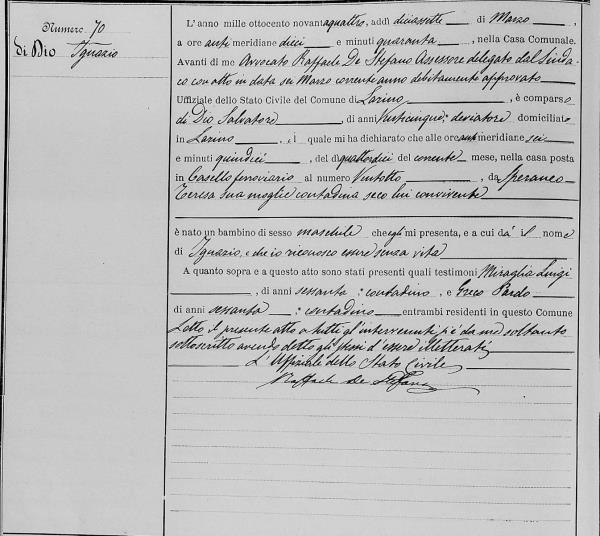 Numero 70
di Dio Ignazio
L'anno mille ottocento novantaquattro, addì diciassette di Marzo,
a ore anti meridiane dieci e minuti quaranta, nella Casa Comunale.
Avanti di me Avvocato Raffaele De Stefano Assessore delegato dal Sinda-
co con atto in data sei Marzo corrente anno debitamente approvato
Uffiziale dello Stato Civile del Comune di Larino, è comparso
di Dio Salvatore, di anni venticinque: deviatore domiciliato
in Larino, il quale mi ha dichiarato che alle ore anti meridiane sei
e minuti quindici, del dì quattordici del corrente mese, nella casa posta
in Casello ferroviario al numero Ventotto, da Speranco
Teresa sua moglie contadina seco lui convivente
è nato un bambino di sesso maschile che egli mi presenta, e a cui dà il nome
di Ignazio, e che io riconosco essere senza vita
A quanto sopra e a questo atto sono stati presenti quali testimoni Miraglia Luigi
, di anni sessanta: contadino, e Greco Pardo
di anni sessanta: contadino entrambi residenti in questo Comune
Letto il presente atto a tutti gl'intervenuti si è da me soltanto
sottoscritto avendo detto gli stessi d'essere illetterati
L'Uffiziale dello Stato Civile
Raffaele de Stefano